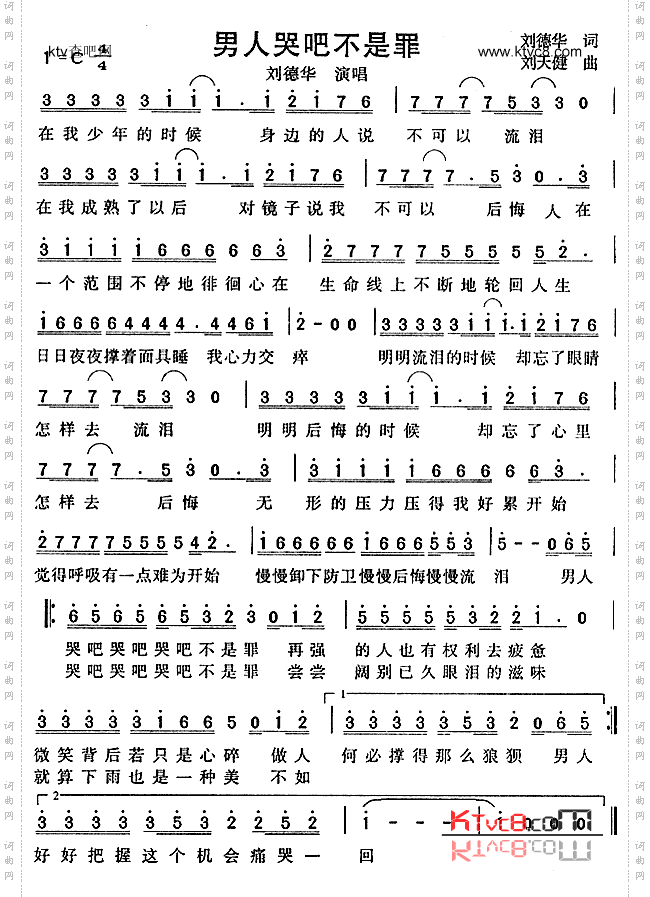 ktv杏吧网
男人哭吧不是罪
www.ktvc8.com
刘德华 词
1=C 4/4
刘天健 曲
刘德华 演唱
3 3 3 3 3 1 1 1 . 1 2 1 7 6 | 7 7 7 7 5 3 3 0 |
在我少年的时候 身边的人说 不可以 流泪
3 3 3 3 3 1 1 1 . 1 2 1 7 6 | 7 7 7 7 . 5 3 0 . 3 |
在我成熟了以后 对镜子说我 不可以 后悔 人在
3 1 1 1 1 6 6 6 6 6 6 3 | 2 7 7 7 7 5 5 5 5 5 2 . |
一个范围不停地徘徊心在 生命线上不断地轮回人生
1 6 6 6 6 4 4 4 4 . 4 4 6 1 | 2 - 0 0 | 3 3 3 3 3 1 1 1 . 1 2 1 7 6 |
日日夜夜撑着面具睡 我心力交 瘁 明明流泪的时候 却忘了眼睛
7 7 7 7 5 3 3 0 | 3 3 3 3 3 1 1 1 . 1 2 1 7 6 |
怎样去 流泪 明明后悔的时候 却忘了心里
7 7 7 7 . 5 3 0 . 3 | 3 1 1 1 1 6 6 6 6 6 6 3 |
怎样去 后悔 无 形的压力压得我好累开始
2 7 7 7 7 5 5 5 5 5 4 2 . | 1 6 6 6 6 6 1 6 6 6 6 5 6 3 | 5 - - 0 6 5 |
觉得呼吸有一点难为开始 慢慢卸下防卫慢慢后悔慢慢流 泪 男人
6 5 6 5 6 5 6 5 3 2 3 0 1 2 | 5 5 5 5 5 5 3 2 2 1 . 0 |
哭吧哭吧哭吧不是罪 再强 的人也有权利去疲惫
哭吧哭吧哭吧不是罪 尝尝 阔别已久眼泪的滋味
1
3 3 3 3 3 1 6 6 5 0 1 2 | 3 3 3 3 3 5 3 2 0 6 5 :|
微笑背后若只是心碎 做人 何必撑得那么狼狈 男人
就算下雨也是一种美 不如
2
3 3 3 3 3 3 5 3 2 2 5 2 | 1 - - - | 1 - 0 0 0 ||
KTVC8.COM
好好把握这个机会痛哭一 回
词曲网